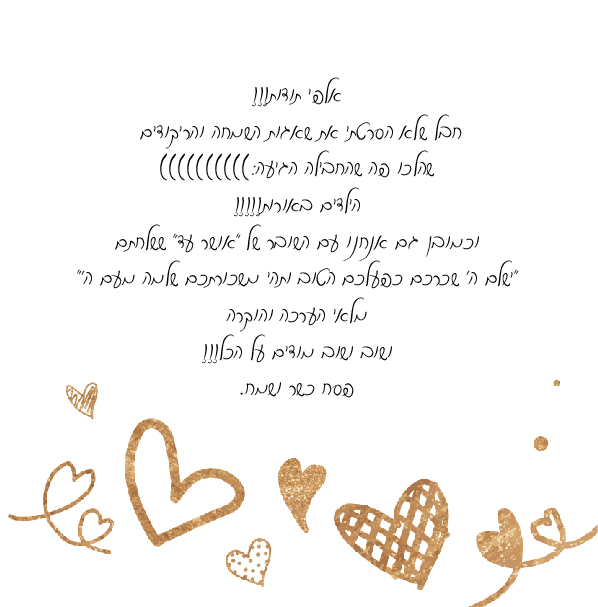 אלפי תודות!!!
חבל שלא הסרטתי את שאגות השמחה והריקודים
שהלכו פה שהחבילה הגיעה:))))))))))
הילדים באורות!!!!!
וכמובן גם אנחנו עם השובר של "אושר עד" ששלחתם
"ישלם ה' שכרכם כפעלכם הטוב ותהי משכורתכם שלמה מעם ה'"
מלאי הערכה והוקרה
ושוב ושוב מודים על הכל!!!
פסח כשר ושמח.